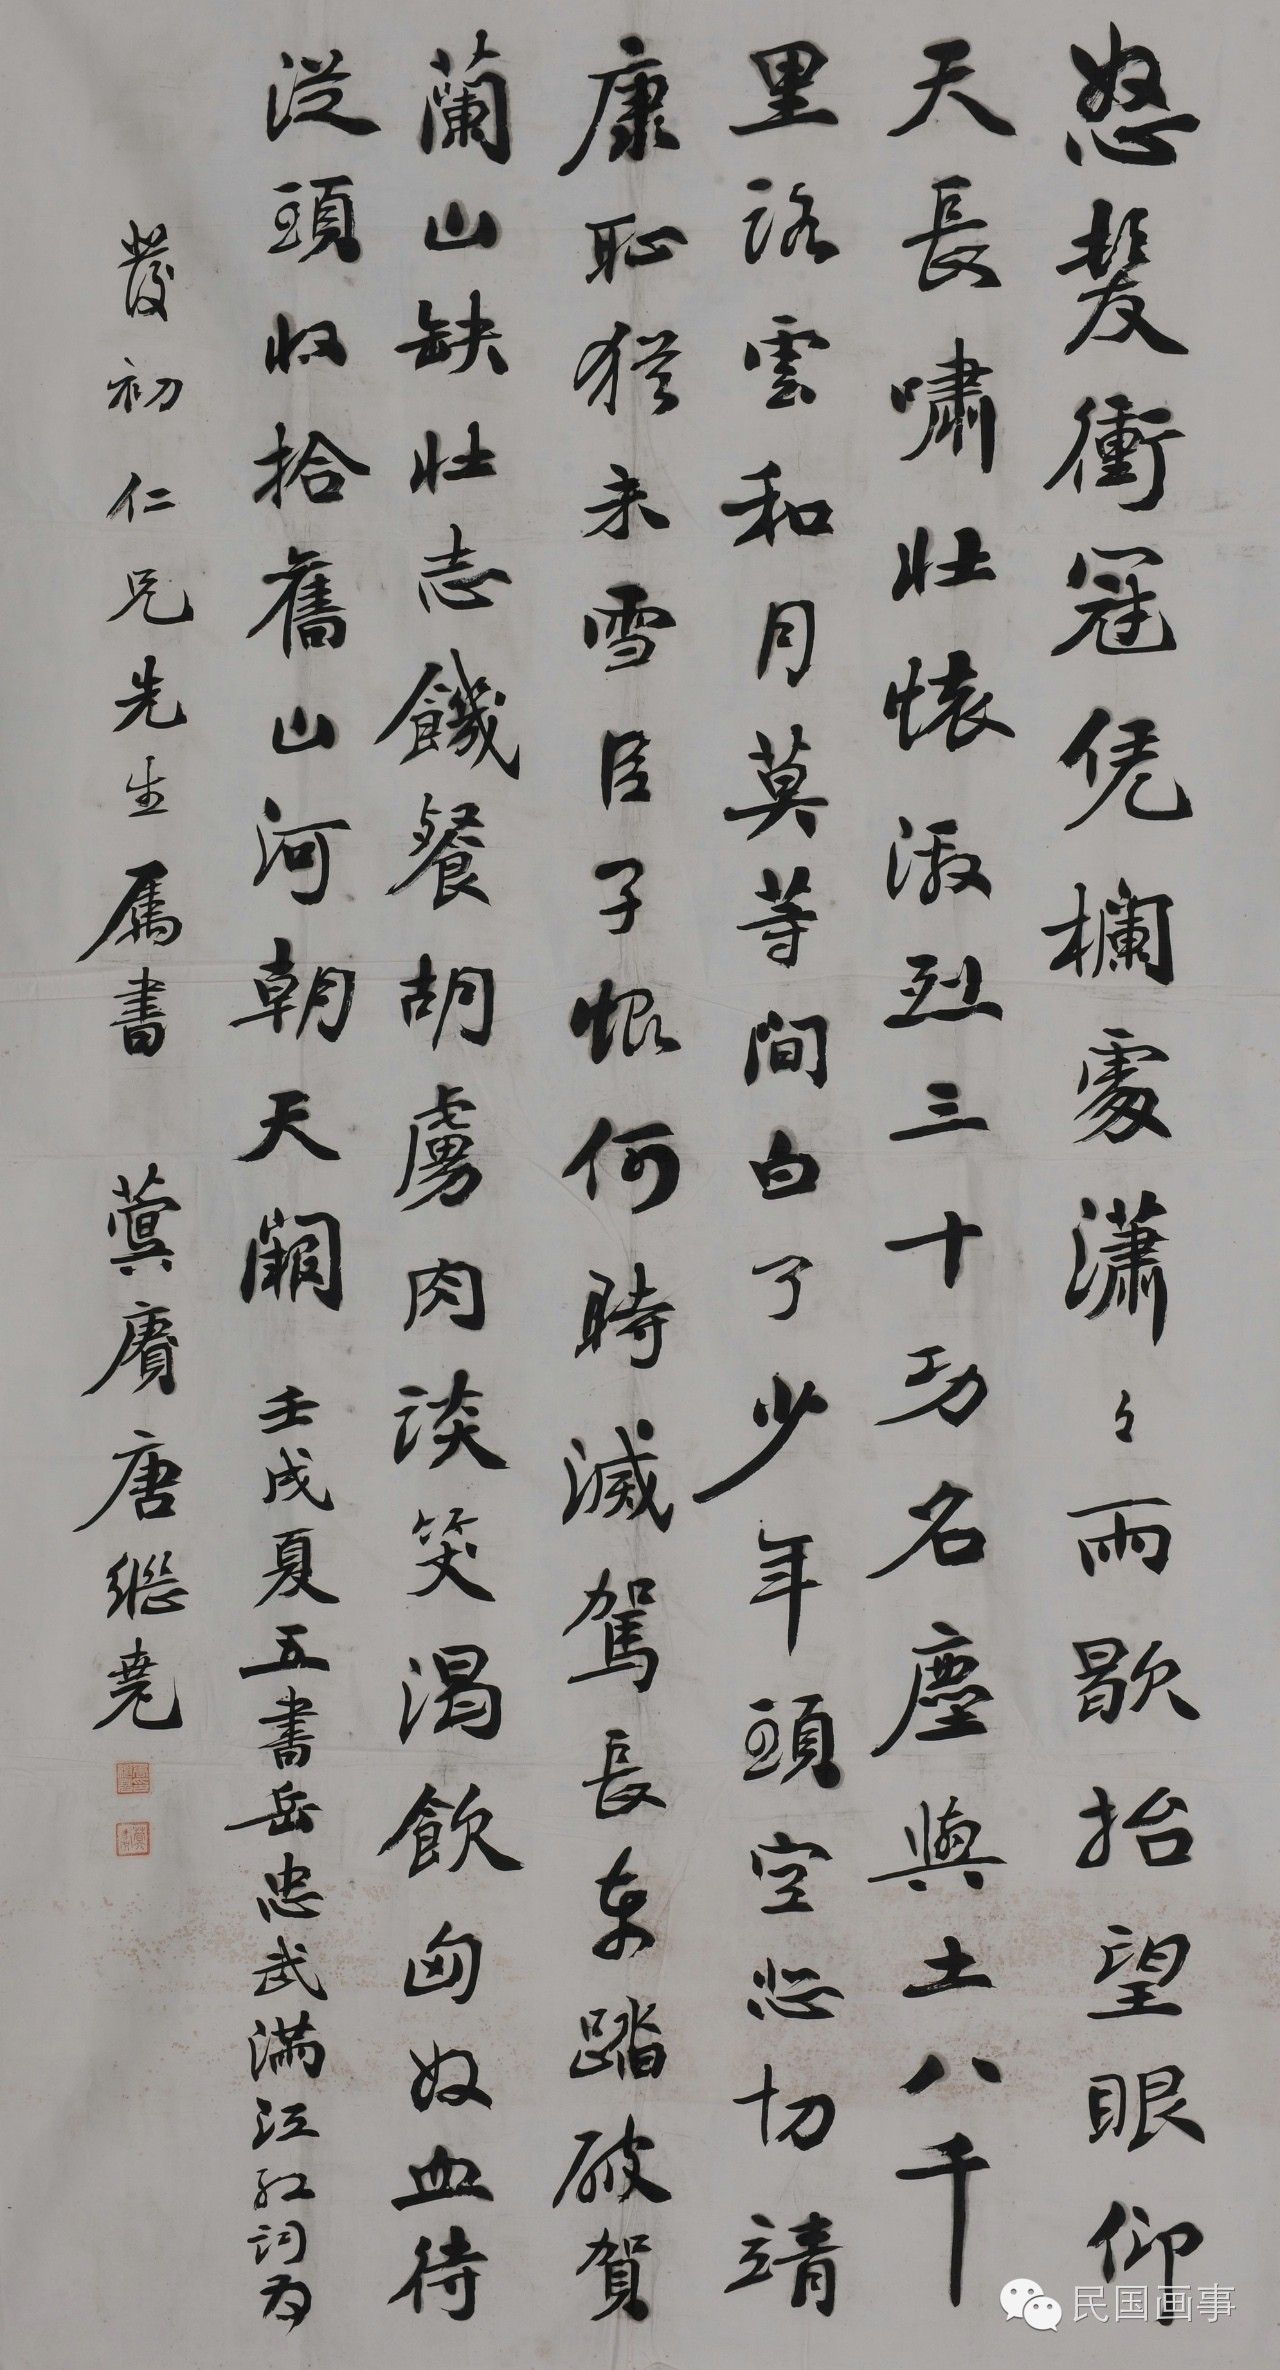 怒髮衝冠凭欄處瀟々雨歇抬望眼仰
天長嘯壯懷激烈三十功名塵與土八千
里路雲和月莫等閒白了少年頭空悲切靖
康恥猶未雪臣子恨何時滅駕長車踏破賀
蘭山缺壯志饑餐胡虜肉談笑渴飲匈奴血待
從頭收拾舊山河朝天闕 壬戌夏五書岳忠武滿江紅詞為
發初仁兄先生屬書 蓂賡唐繼堯
民国画事